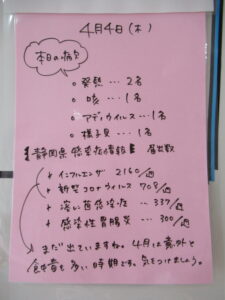 4月4日(木)
本日の病欠
○ 発熱 … 2名
○ 咳 … 1名
○ アデノウイルス … 1名
○ 様子見 … 1名
静岡県 感染症情報 届出数
インフルエンザ 2160/週
新型コロナウイルス 708/週
溶い菌感染症 … 337/週
感染性胃腸炎 … 300/週
まだ出ていますね。4月は意外と
食中毒も多い時期です。気をつけましょう。